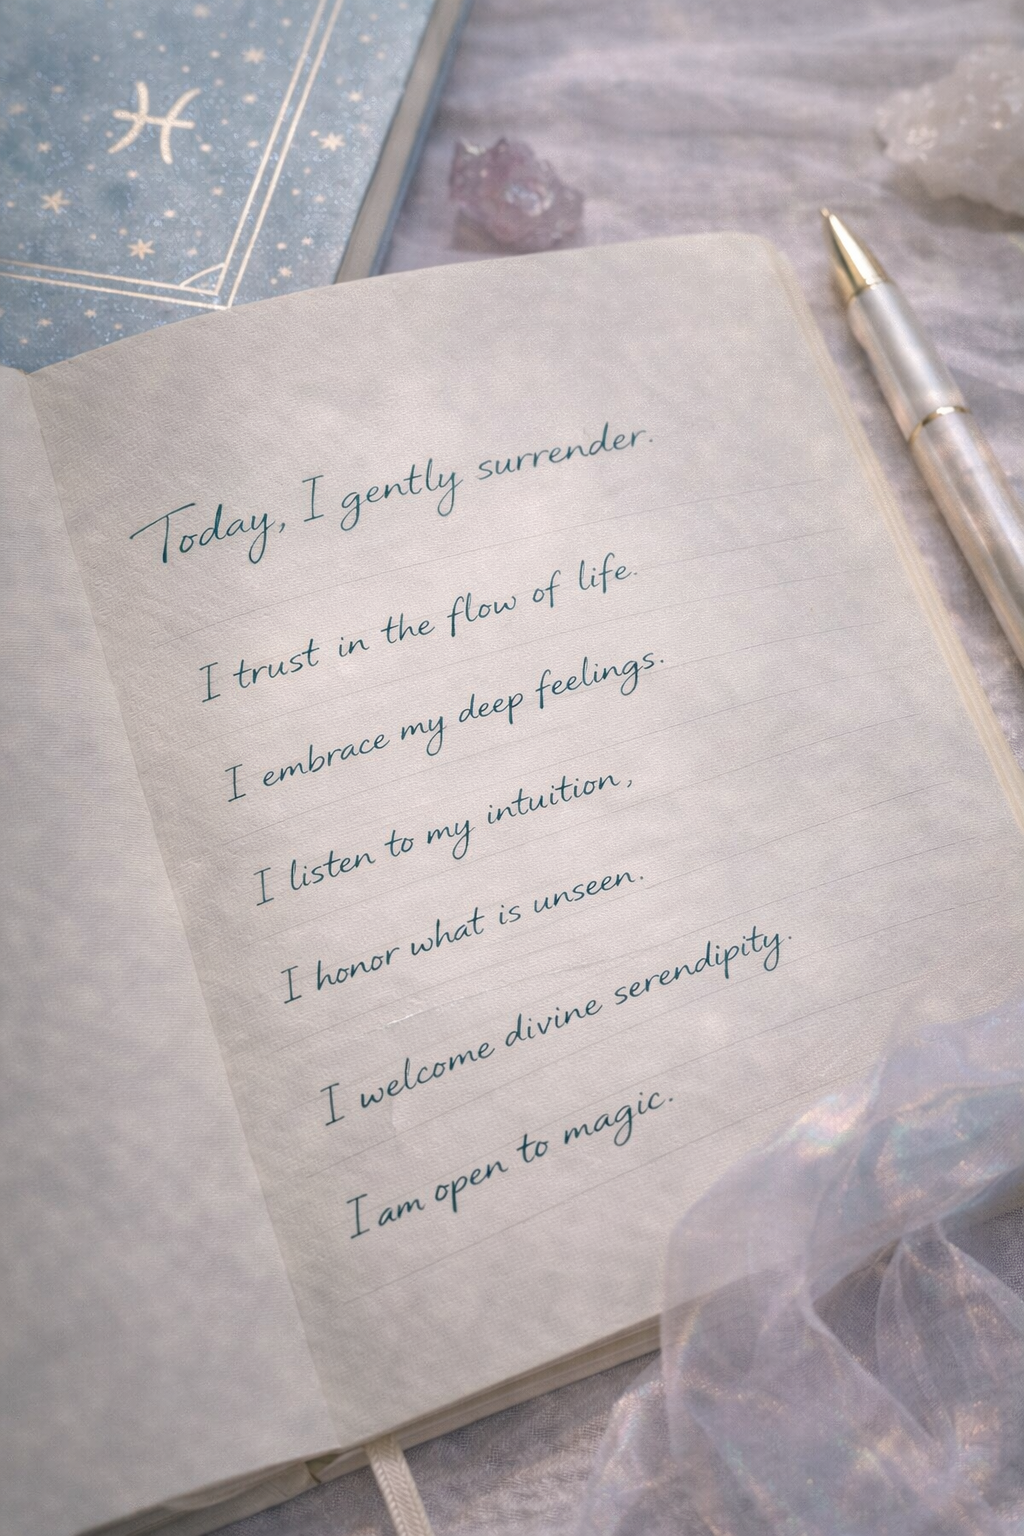 Today, I gently surrender.
I trust in the flow of life.
I embrace my deep feelings.
I listen to my intuition,
I honor what is unseen.
I welcome divine serendipity.
I am open to magic.